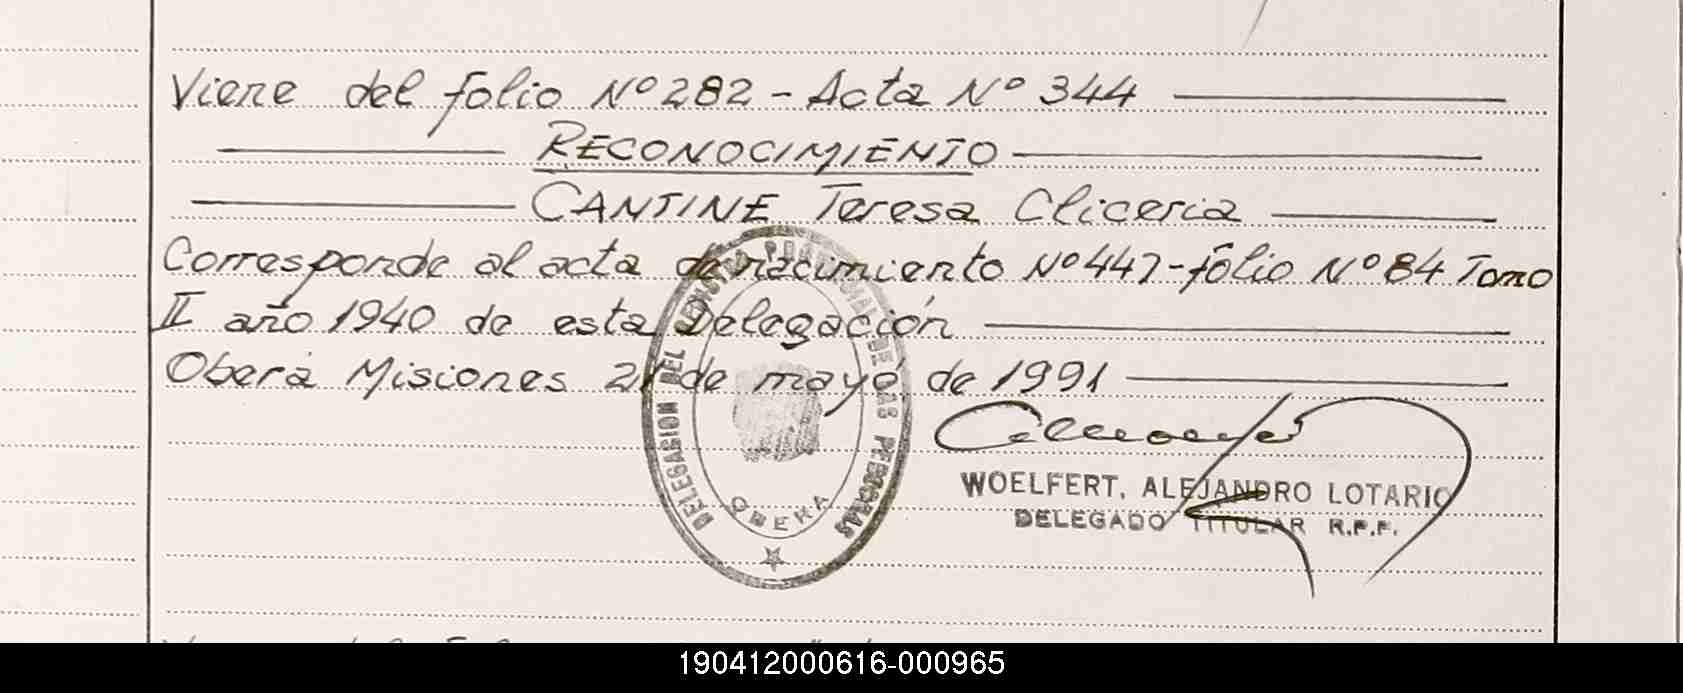 Viene del folio Nº 282 - Acta Nº 344
RECONOCIMIENTO
CANTINE Teresa Cliceria
Corresponde al acta de nacimiento Nº 447 - folio Nº 84 Tomo
II año 1940 de esta Delegación
Oberá Misiones 21 de mayo de 1991
DELEGACION DEL REGISTRO PROVINCIAL DE LAS PERSONAS
OBERA
WOELFERT, ALEJANDRO LOTARIO
DELEGADO TITULAR R.P.P.
190412000616-000965